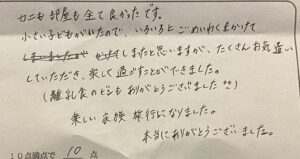 カニも部屋も全て良かったです。
小さい子どもがいたので、いろいろとごめいわくをかけて
しまいましたが かけて しまったと思いますが、たくさんお気遣い
していただき、楽しく過ごすことができました。
(離乳食のビンも ありがとうございました^^)
楽しい家族旅行になりました。
本当にありがとうございました。
10点満点で 10 点